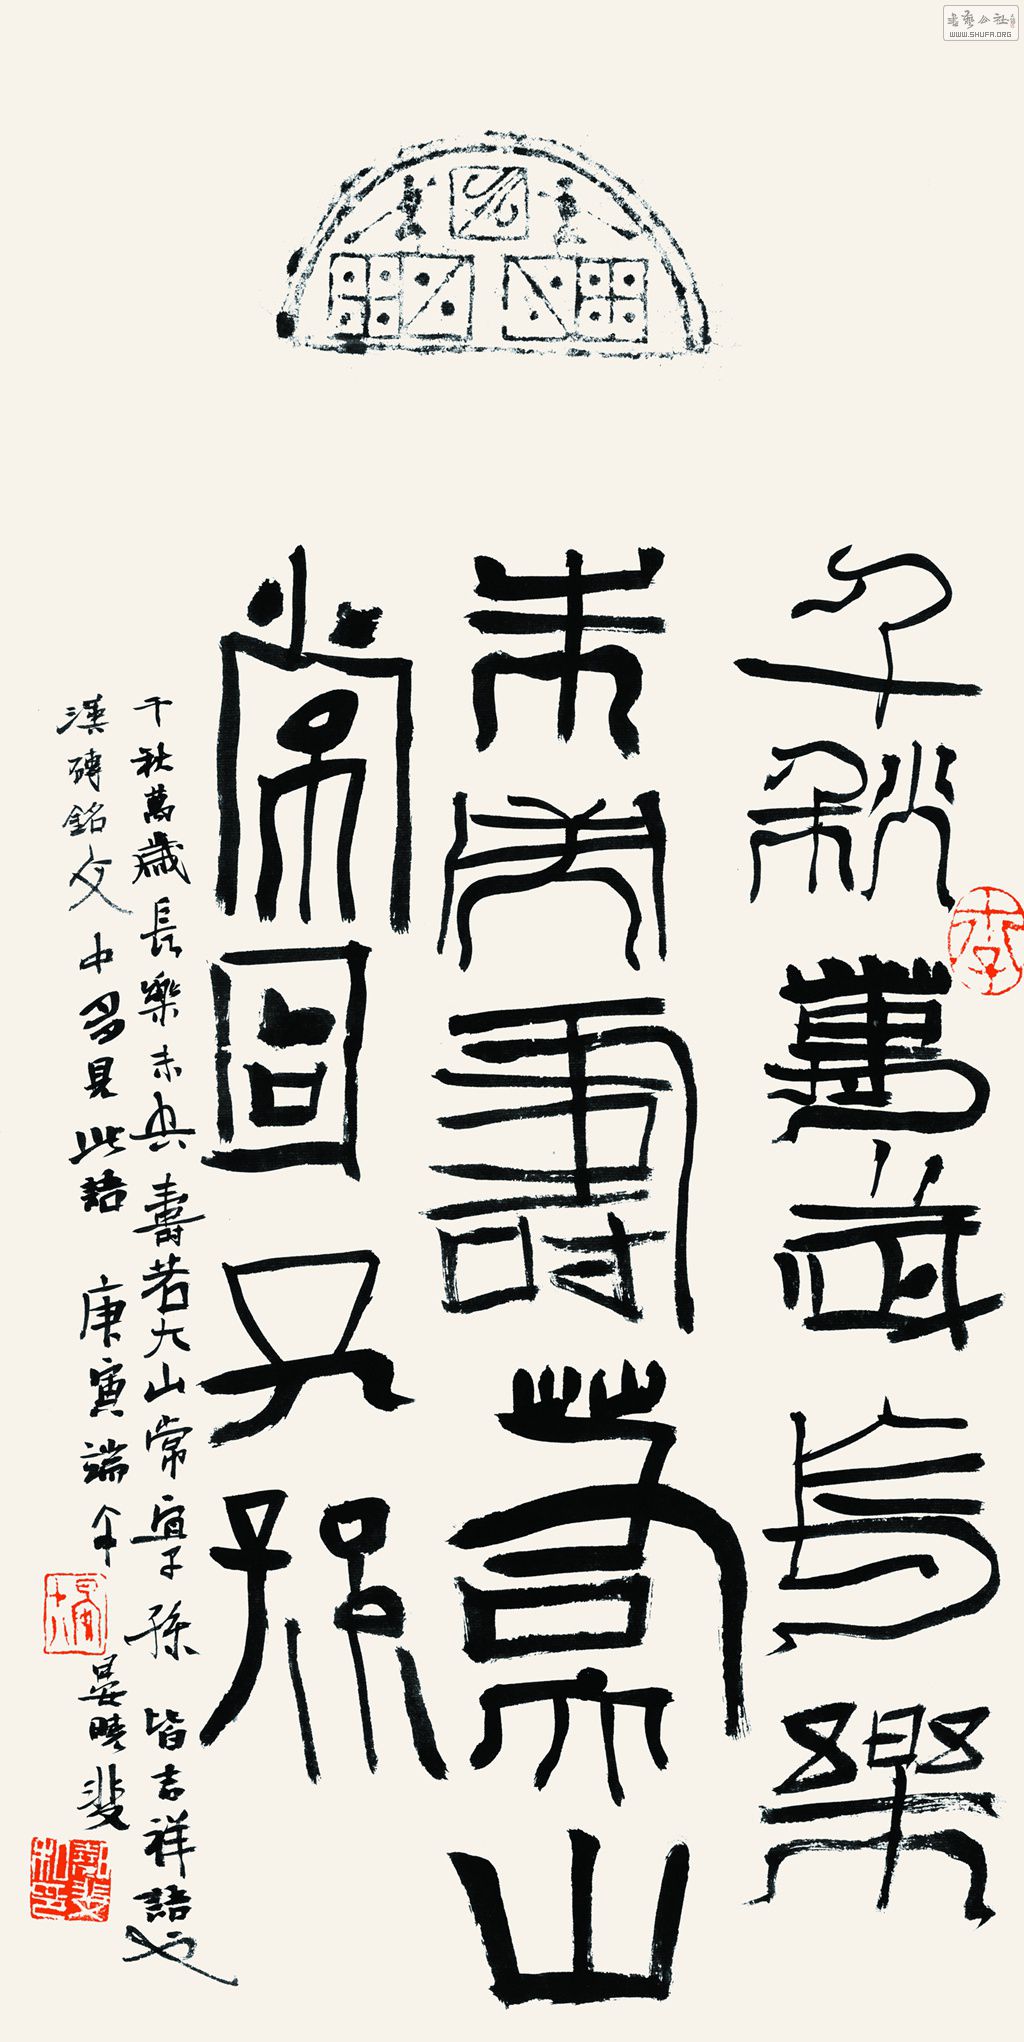 書藝公社
WWW.SHUFA.ORG
千秋萬歲長樂
未央壽若大山
常宜子孫
千秋萬歲長樂未央壽若大山常宜子孫皆吉祥語也
漢磚銘文中多見此語庚寅端午晏曉斐